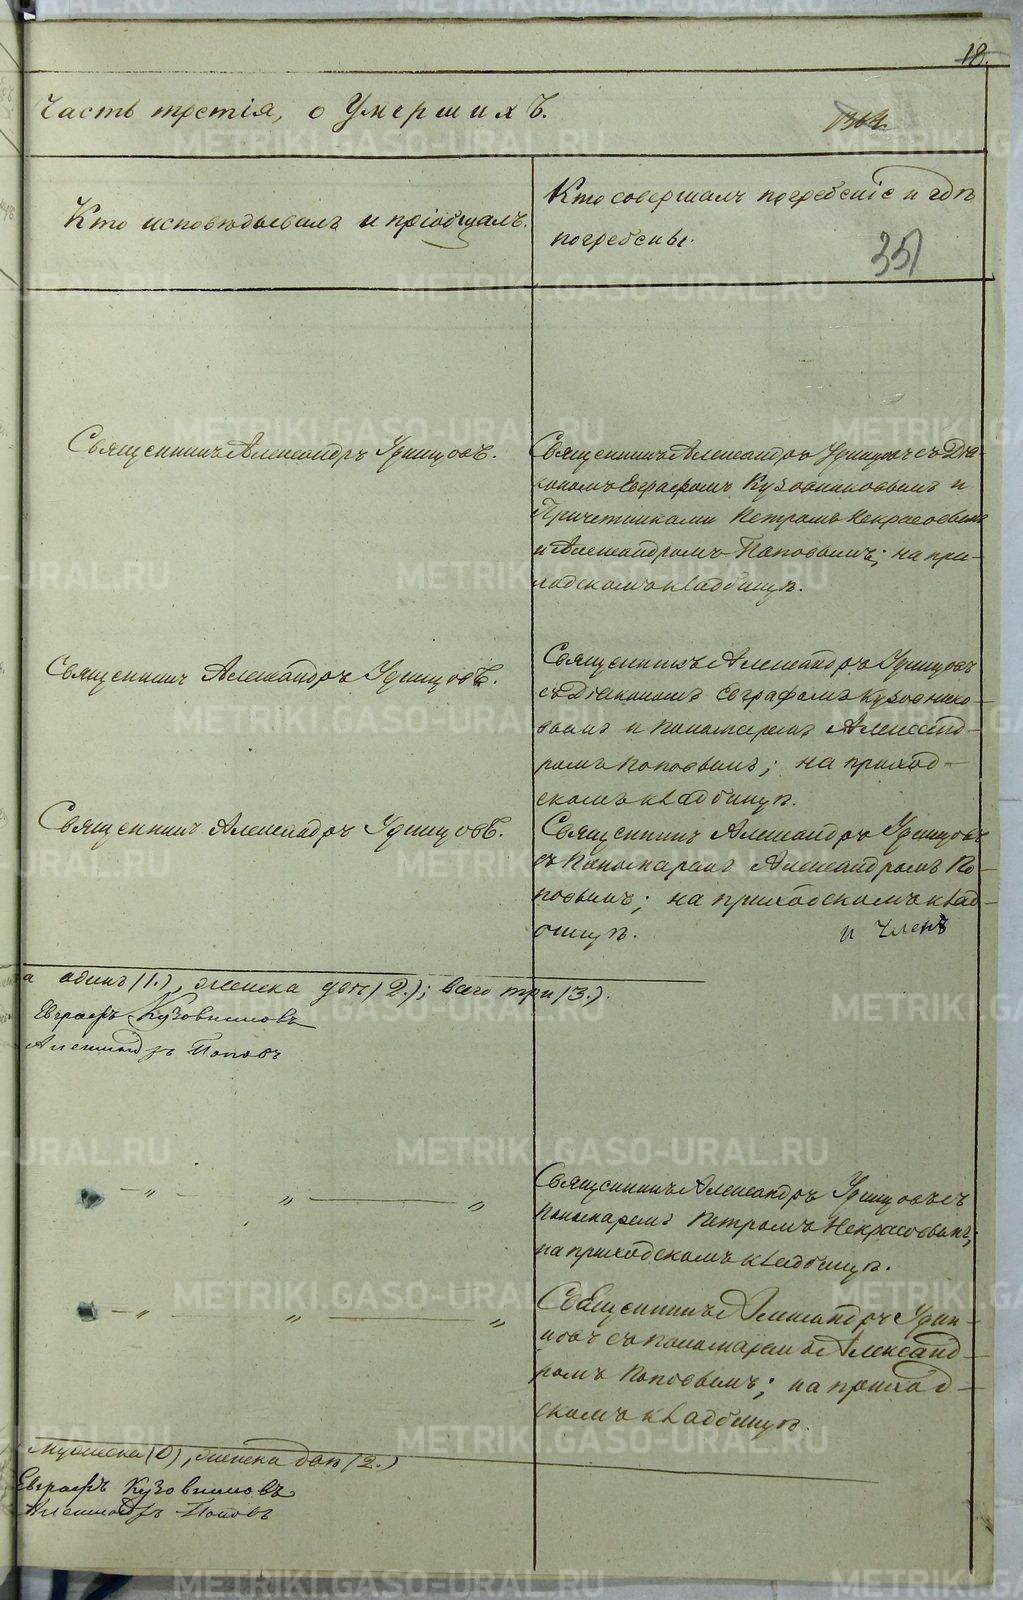 18.
Часть третія, о Умершихъ.
351
Кто исповѣдывалъ и пріобщалъ.
Кто совершалъ погребеніе и гдѣ
погребены.
Священникъ Александръ Удинцовъ.
Священникъ Александръ Удинцовъ съ Діа-
кономъ Евграфомъ Кузовниковымъ и
Причетниками Петромъ Некрасовымъ
и Александромъ Поповымъ; на при-
ходскомъ кладбищѣ.
Священникъ Александръ Удинцовъ.
Священникъ Александръ Удинцовъ
съ Діакономъ Евграфомъ Кузовнико-
вымъ и Пономаремъ Александ-
ромъ Поповымъ; на приход-
скомъ кладбищѣ.
Священникъ Александръ Удинцовъ.
Священникъ Александръ Удинцовъ
съ Пономаремъ Александромъ По-
повымъ; на приходскомъ клад-
бищѣ.
и Членъ
а одинъ (1.), женска двѣ (2.); всего три (3.).
Евграфъ Кузовниковъ
Александръ Поповъ
Священникъ Александръ Удинцовъ съ
Пономаремъ Петромъ Некрасовымъ;
на приходскомъ кладбищѣ.
Священникъ Александръ Удин-
цовъ съ Пономаремъ Александ-
ромъ Поповымъ; на приход-
скомъ кладбищѣ.
мужеска (0), женска двѣ (2.)
Евграфъ Кузовниковъ
Александръ Поповъ
METRIKI.GASO-URAL.RU